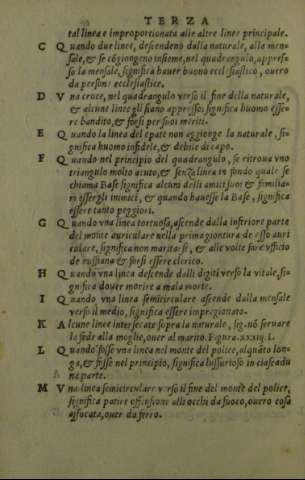 TERZA
tal linea e improportionata alle altre linee principale.
C Quando due linee, descendeno dalla naturale, alla men-
sale, & se cõgiongeno insieme, nel quadrangulo, appres-
so la mensale, significa hauer buono ecclesiastico, ouero
da persone ecclesiastice.
D Vna croce, nel quadrangulo verso il fine della naturale,
& alcune linee gli siano appresso: significa huomo esse-
re bandito, & forsi per suoi meriti.
E Quando la linea del epate non aggionge la naturale, si-
gnifica huomo infidele, & debile di capo.
F Quando nel principio del quadrangulo, se ritroua vno
triangulo molto acuto, & senza linea in fondo quale se
chiama Base significa alcuni delli amici suoi & familia-
ri essergli inimici, & quando hauesse la Base, significa
essere tanto peggiori.
G Quando vna linea tortuosa, ascende dalla inferiore parte
del monte auriculare nella prima giontura de esso auri
culare, significa non maritarsi, & alle volte fare vfficio
de ruffiana & forsi essere clerico.
H Quando vna linea descende dalli digiti verso la vitale, si-
gnifica douer morire a mala morte.
I Quando vna linea semicirculare ascende dalla mensale
verso il medio, significa essere impregionato.
K Alcune linee intersecate sopra la naturale, sig. nõ seruare
la fede alla moglie, ouer al marito. Figura. xxxiij. L.
L Quando fosse vna linea nel monte del police, alquãto lon-
ga, & fosse nel principio, significa lussurioso in ciascadu
na parte.
M Vna linea semicirculare verso il fine del monte del police,
significa patire offensione alli occhi da fuoco, ouero cosa
affocata, ouer da ferro.